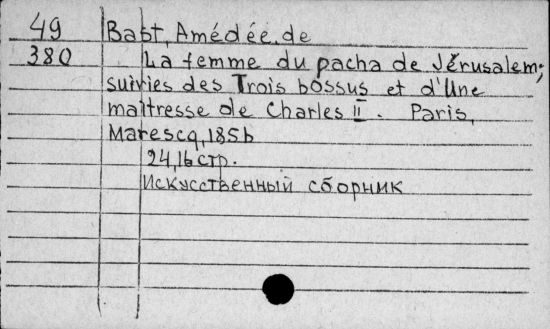 49 Bast, Amédée, de
380 La femme du pacha de Jérusalem;
suivies des Trois bossus et d'Une
maîtresse de Charles II. Paris,
Marescq, 1856
24,16 стр.
Искусственный сборник